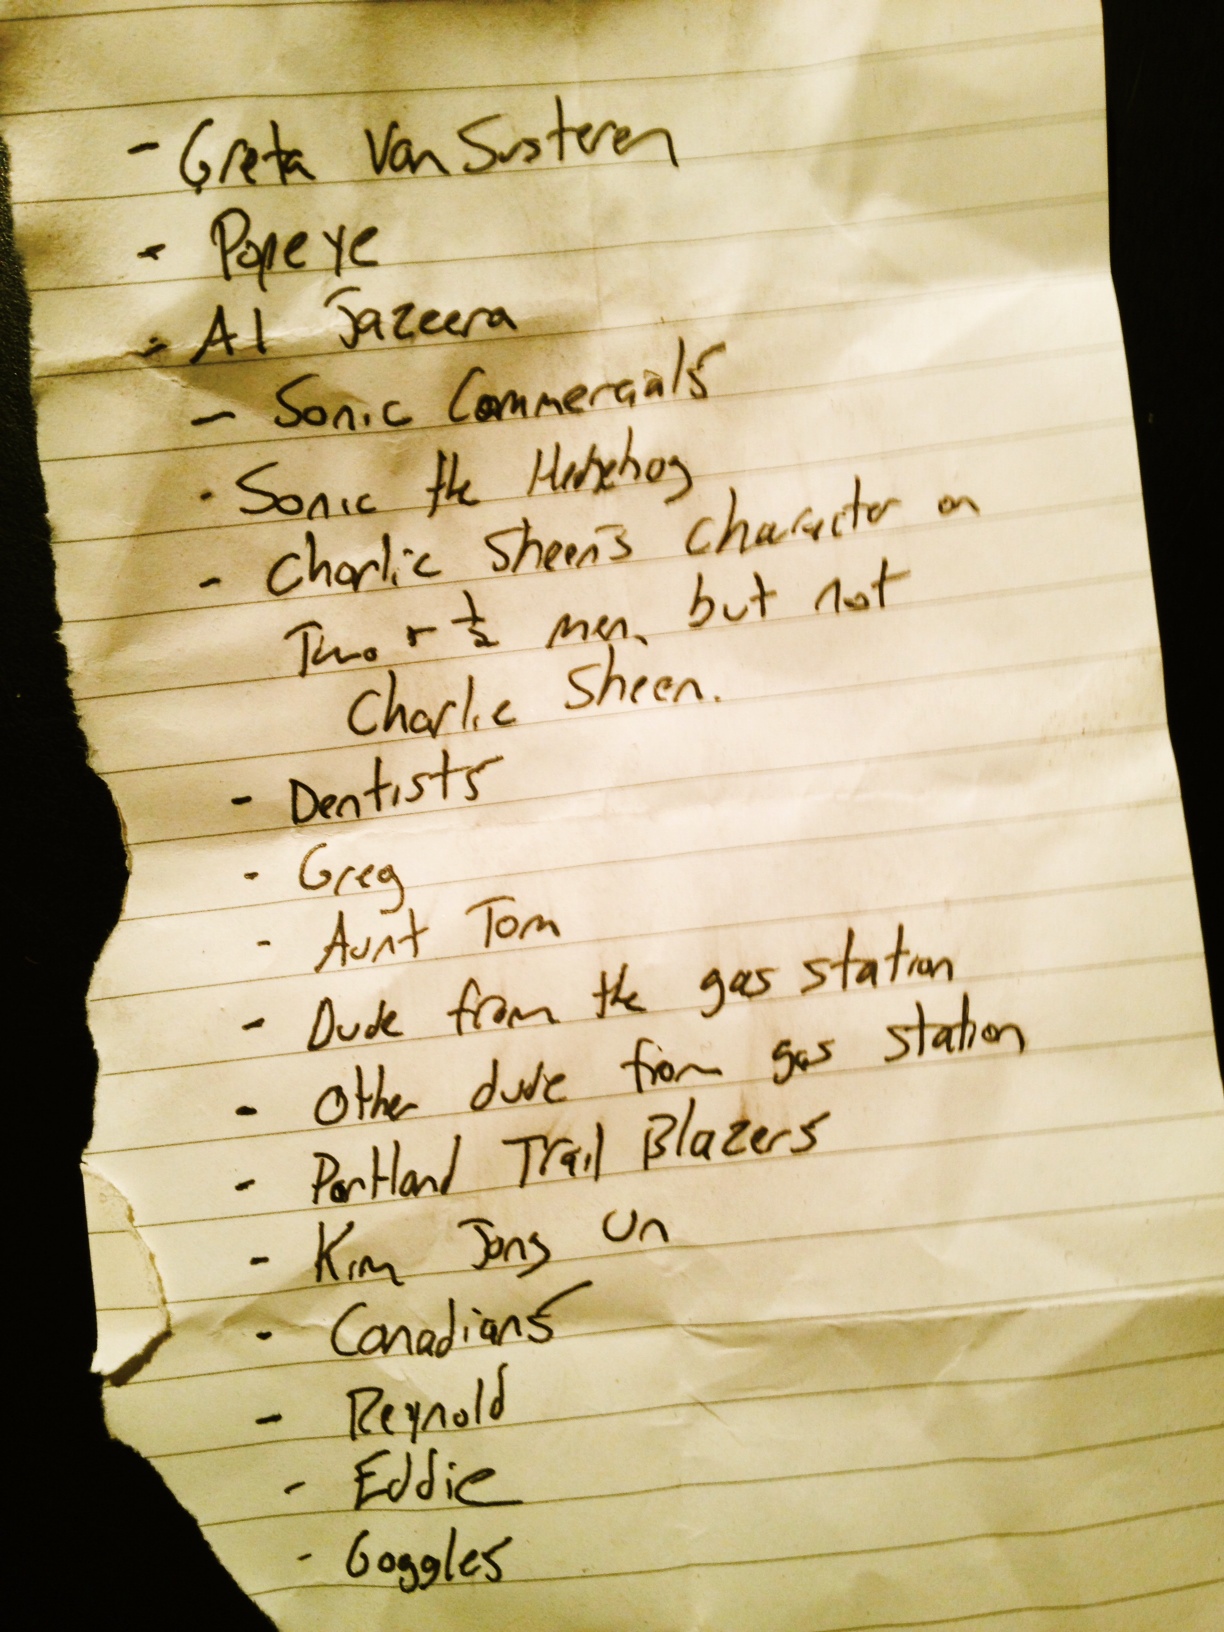 - Greta Van Susteren
- Popeye
- Al Jazeera
- Sonic Commercials
- Sonic the Hedgehog
- Charlie Sheen's character on
Two + ½ men, but not
Charlie Sheen.
- Dentists
- Greg
- Aunt Tom
- Dude from the gas station
- Other dude from gas station
- Portland Trail Blazers
- Kim Jong Un
- Canadians
- Reynold
- Eddie
- Goggles